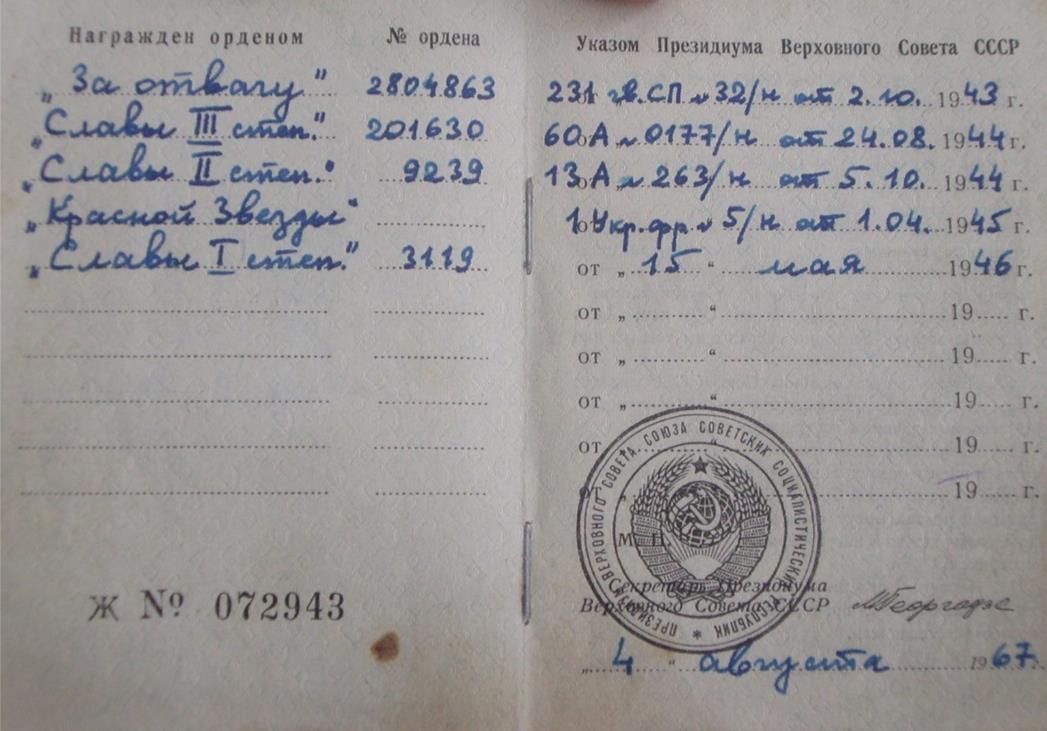 Награжден орденом № ордена Указом Президиума Верховного Совета СССР
„За отвагу” 2804863 231 гв.СП № 32/н от 2.10. 1943 г.
„Славы III степ.” 201630 60 А № 0177/н от 24.08. 1944 г.
„Славы II степ.” 9239 13 А № 263/н от 5.10. 1944 г.
„Красной Звезды” 1 Укр.фр. № 5/н от 1.04. 1945 г.
„Славы I степ.” 3119 от „ 15 “ мая 1946 г.
от „ “ 19 г.
от „ “ 19 г.
от „ “ 19 г.
от „ “ 19 г.
от „ 19 г.
ПРЕЗИДИУМ ВЕРХОВНОГО СОВЕТА СОЮЗА СОВЕТСКИХ СОЦИАЛИСТИЧЕСКИХ РЕСПУБЛИК *
М. П.
Секретарь Президиума
Верховного Совета СССР МГеоргадзе
Ж № 072943
„ 4 “ августа 1967 г.